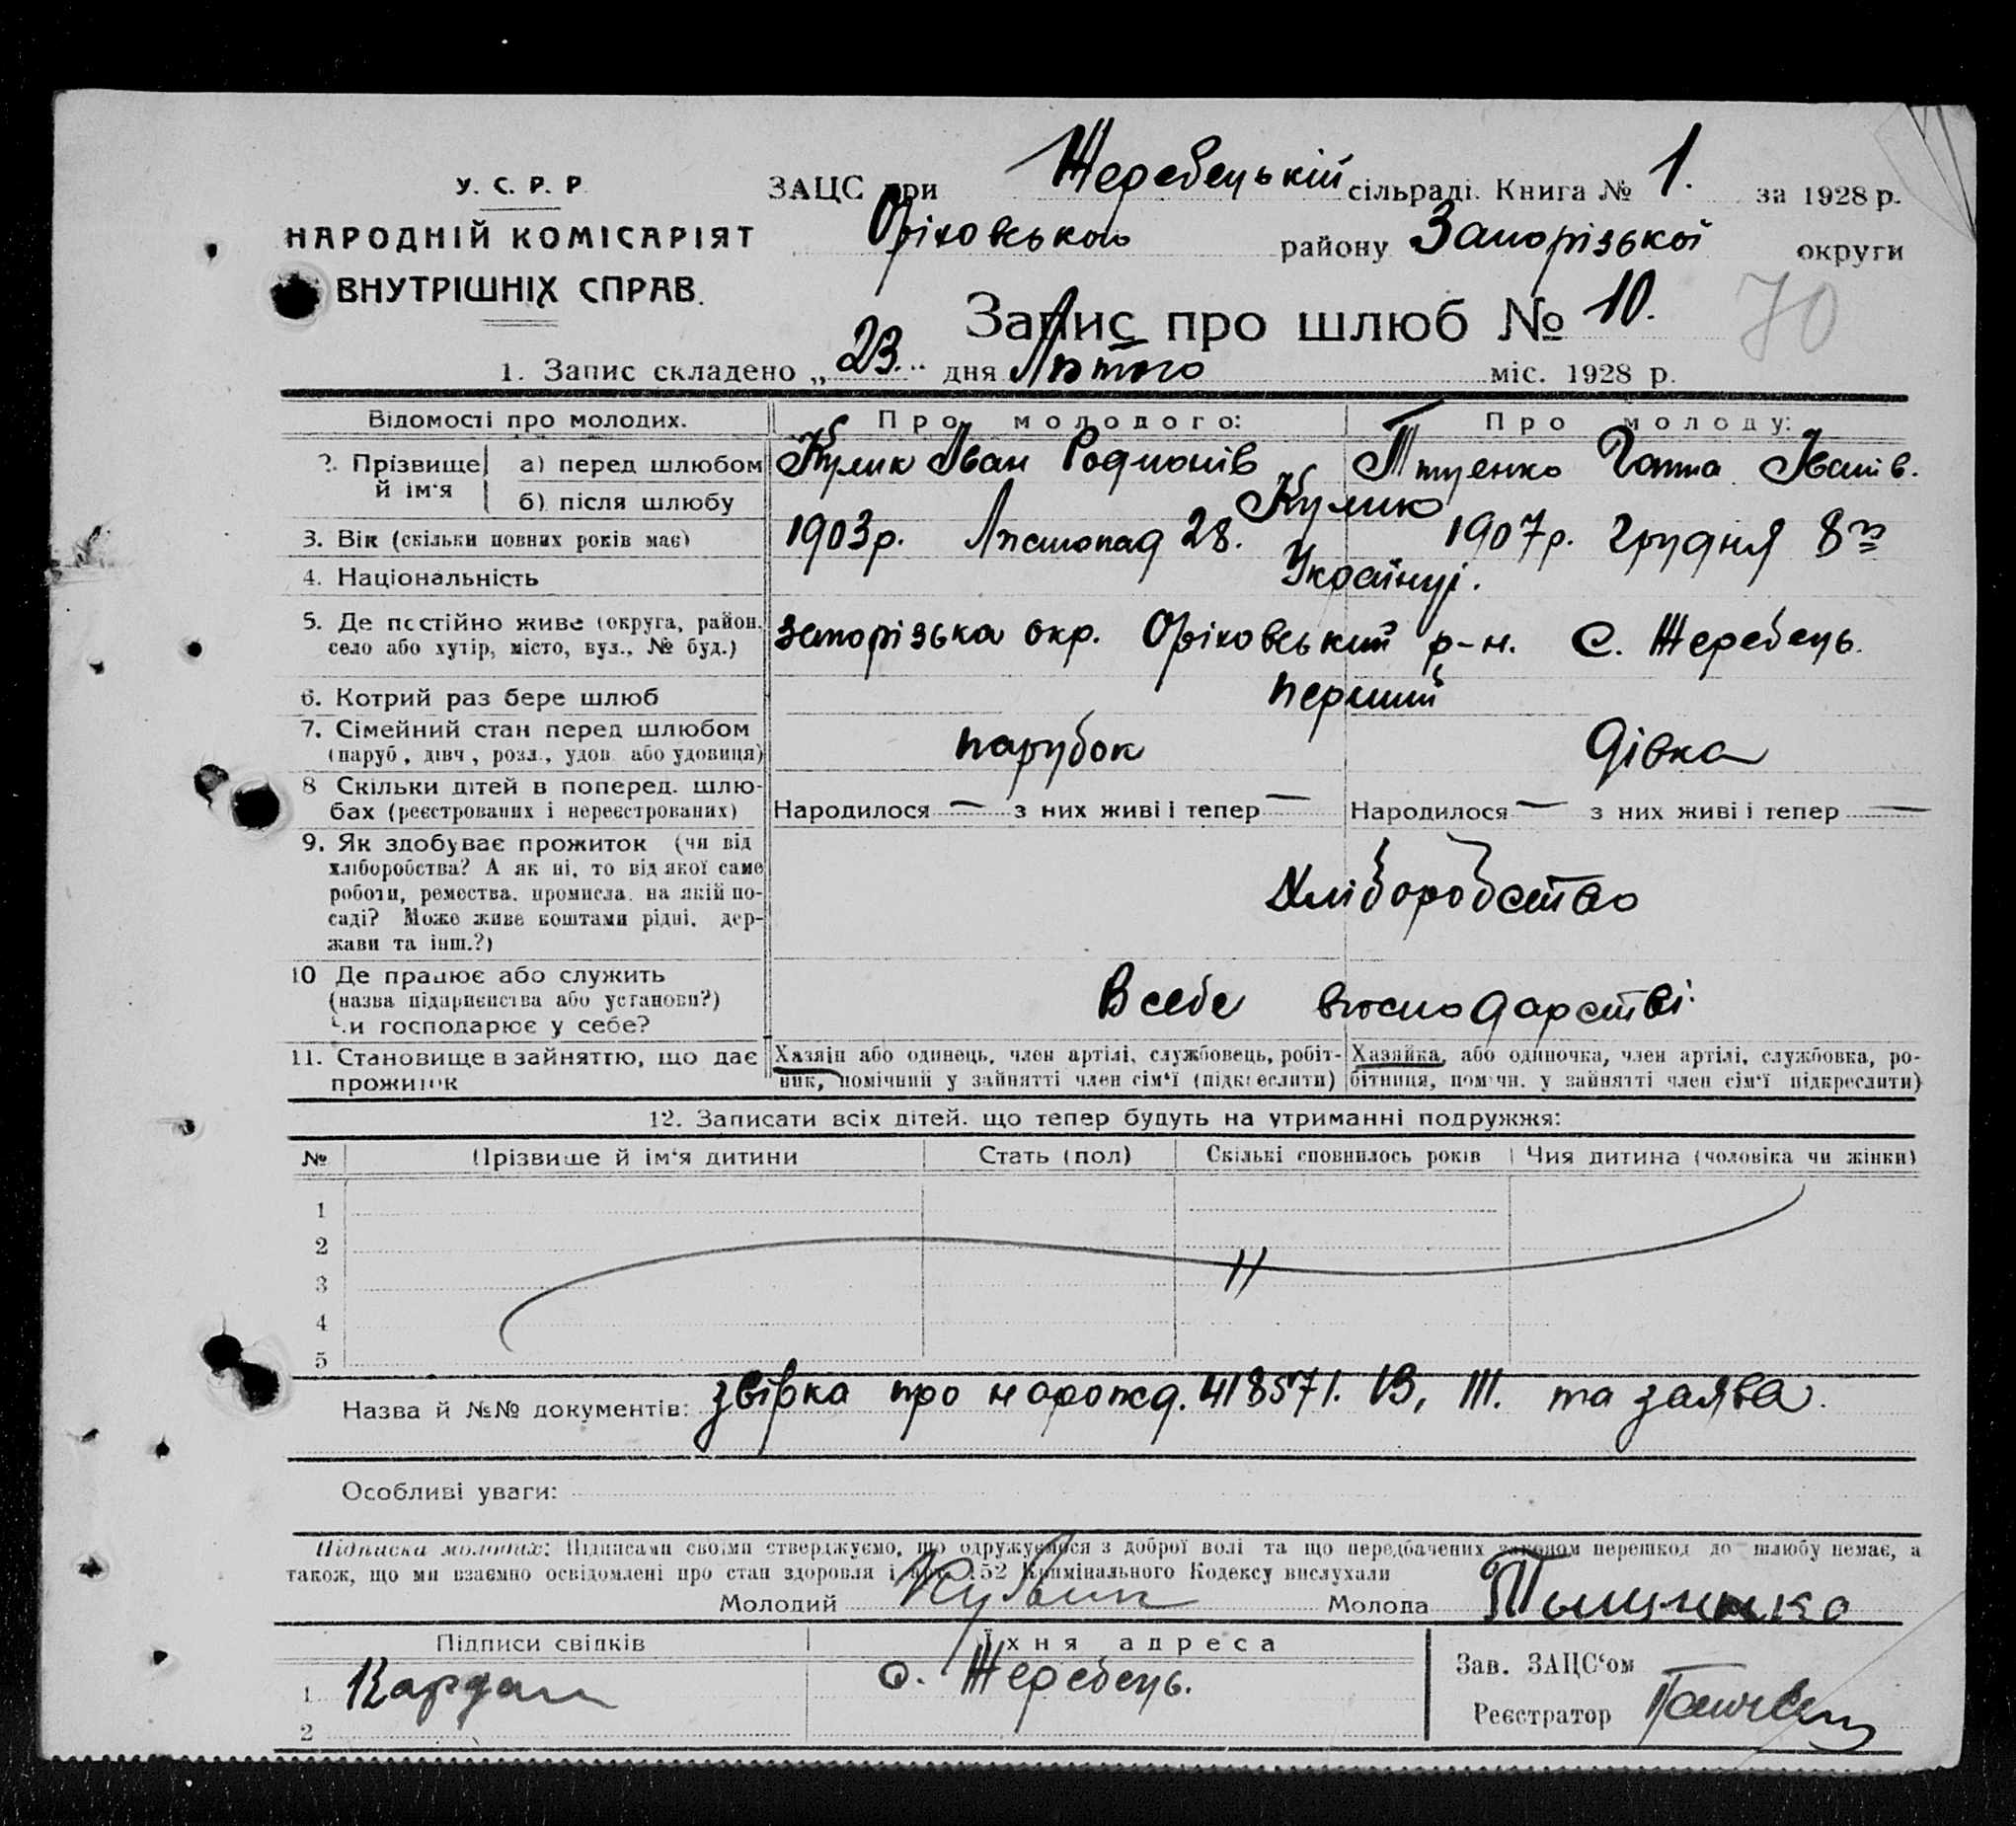 У. С. Р. Р.
НАРОДНІЙ КОМІСАРІЯТ
ВНУТРІШНІХ СПРАВ.
ЗАЦС при Жеребецькій сільраді. Книга № 1. за 1928 р.
Оріховського району Запорізької округи
Запис про шлюб № 10.
70
1. Запис складено „23." дня Лютого міс. 1928 р.
Відомості про молодих. Про молодого: Про молоду:
2. Прізвище й ім'я а) перед шлюбом Кулик Іван Родионів Ганна Іванів.
б) після шлюбу Кулик
3. Вік (скільки повних років має) 1903р. Листопад 28. 1907р. Грудня 8го
4. Національність Українці.
5. Де постійно живе (округа, район, село або хутір, місто, вул., № буд.) Запорізька окр. Оріховський р-н. С. Жеребець.
6. Котрий раз бере шлюб перший
7. Сімейний стан перед шлюбом (паруб., дівч., розл., удов. або удовиця) парубок дівка
8 Скільки дітей в поперед. шлюбах (реєстрованих і нереєстрованих) Народилося — з них живі і тепер — Народилося — з них живі і тепер —
9. Як здобуває прожиток (чи від хліборобства? А як ні, то від якої саме роботи, ремества, промисла, на якій посаді? Може живе коштами рідні, держави та інш.?) Хліборобство
10 Де працює або служить (назва підприємства або установи?) Чи господарює у себе? В себе в госпо дарстві.
11. Становище в зайняттю, що дає прожиток Хазяїн або одинець, член артілі, службовець, робітник, помічний у зайнятті член сім'ї (підкреслити) Хазяйка, або одиночка, член артілі, службовка, робітниця, помічн. у зайнятті член сім'ї підкреслити)
12. Записати всіх дітей, що тепер будуть на утриманні подружжя:
№ Прізвище й ім'я дитини Стать (пол) Скількі сповнилось років Чия дитина (чоловіка чи жінки)
1
2
3
4
5
Назва й №№ документів: звірка про нарожд. 418571. ІЗ, ІІІ. та заява.
Особливі уваги:
Підписка молодих: Підписами своїми стверджуємо, що одружуємося з доброї волі та що передбачених законом перешкод до шлюбу немає, а
також, що ми взаємно освідомлені про стан здоровля і арт. 152 Кримінального Кодексу вислухали
Молодий Кулик Молода
Підписи свідків Їхня адреса
1 с. Жеребець.
2
Зав. ЗАЦС'ом
Реєстратор